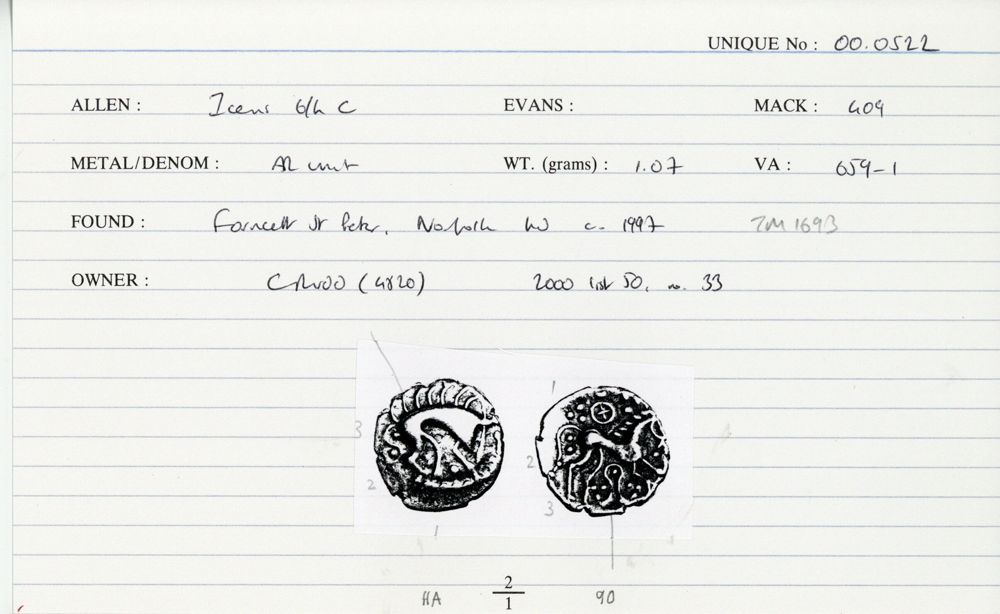 UNIQUE No : 00.0522
ALLEN : Iceni B/H C EVANS : MACK : 409
METAL/DENOM : AR unit WT. (grams) : 1.07 VA : 659-1
FOUND : Forncett St Peter, Norfolk c. 1997 TM 1693
OWNER : (4820) 2000 list 50, no. 33
1
3
2
2
3
1
HA 2/1 90